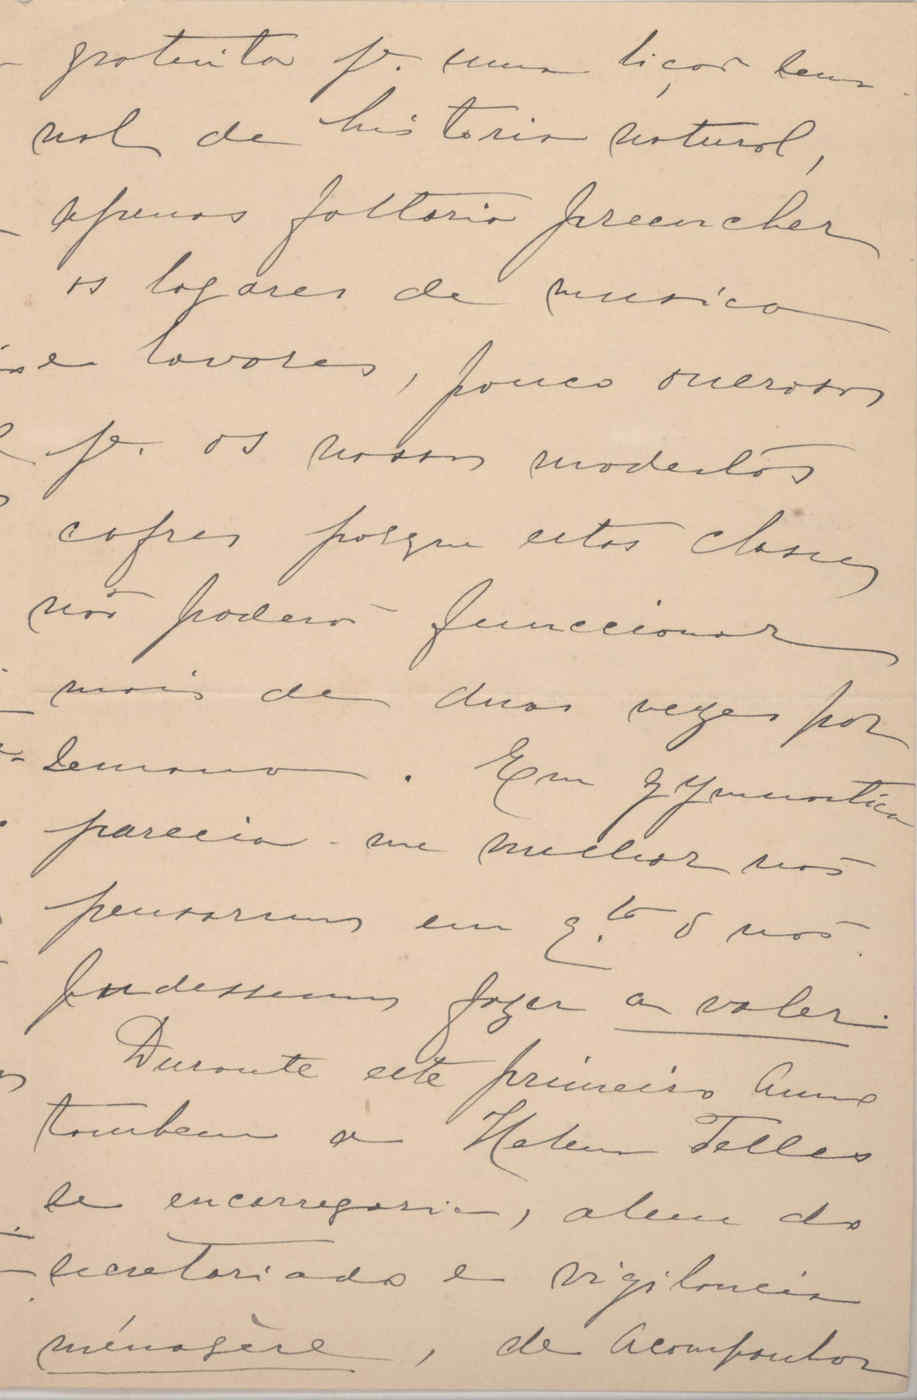 gratuita pa. uma lição sema
nal de historia natural,
apenas faltaria preencher
os logares de musica
e lavores, pouco onerosos
pa. os nossos modestos
cofres porque estas classes
não poderão funccionar
mais de duas vezes por
semana. Em gymnastica
parecia-me melhor não
pensarmos em q.to o não
pudessemos fazer a valer.
Durante este primeiro anno
tambem a Helena Telles
se encarregaria, alem do
secretariado e vigilancia
ménagère, de acompanhar